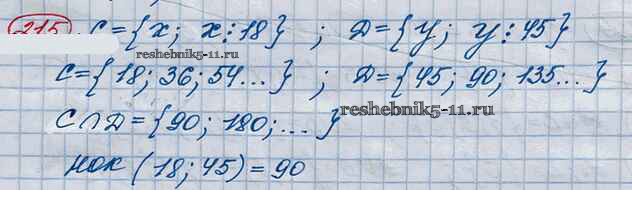 215 C={x; x⋮18} ; D={y; y⋮45}
reshebnik5-11.ru
C={18; 36; 54...} ; D={45; 90; 135...}
C∩D={90; 180; ...}
reshebnik5-11.ru
НОК (18; 45) = 90